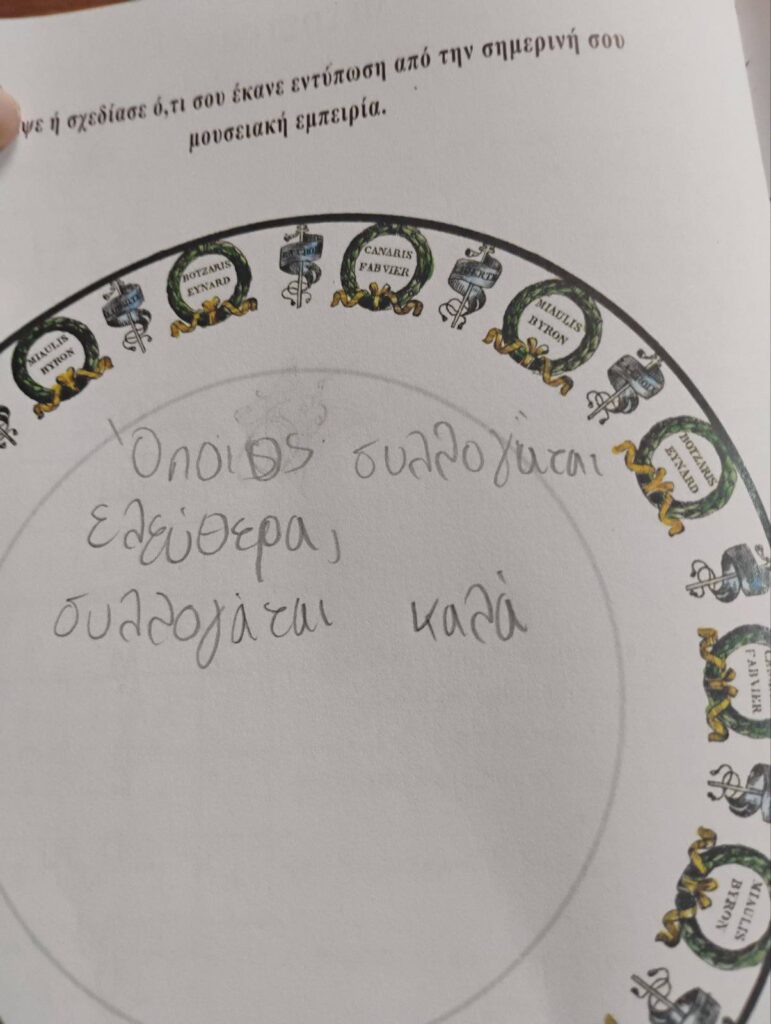 ψε ή σχεδίασε ό,τι σου έκανε εντύπωση από την σημερινή σου
μουσειακή εμπειρία.
MIAULIS
BYRON
BOTZARIS
EYNARD
CANARIS
FABVIER
MIAULIS
BYRON
BOTZARIS
EYNARD
FABVIER
MIAULIS
BYRON
Όποιος συλλογάται
ελεύθερα,
συλλογάται καλά